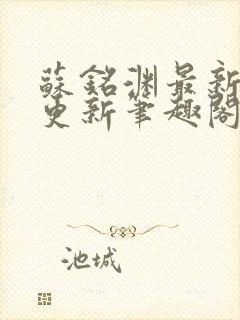 蘇銘淵最新
更新筆趣閣
池城